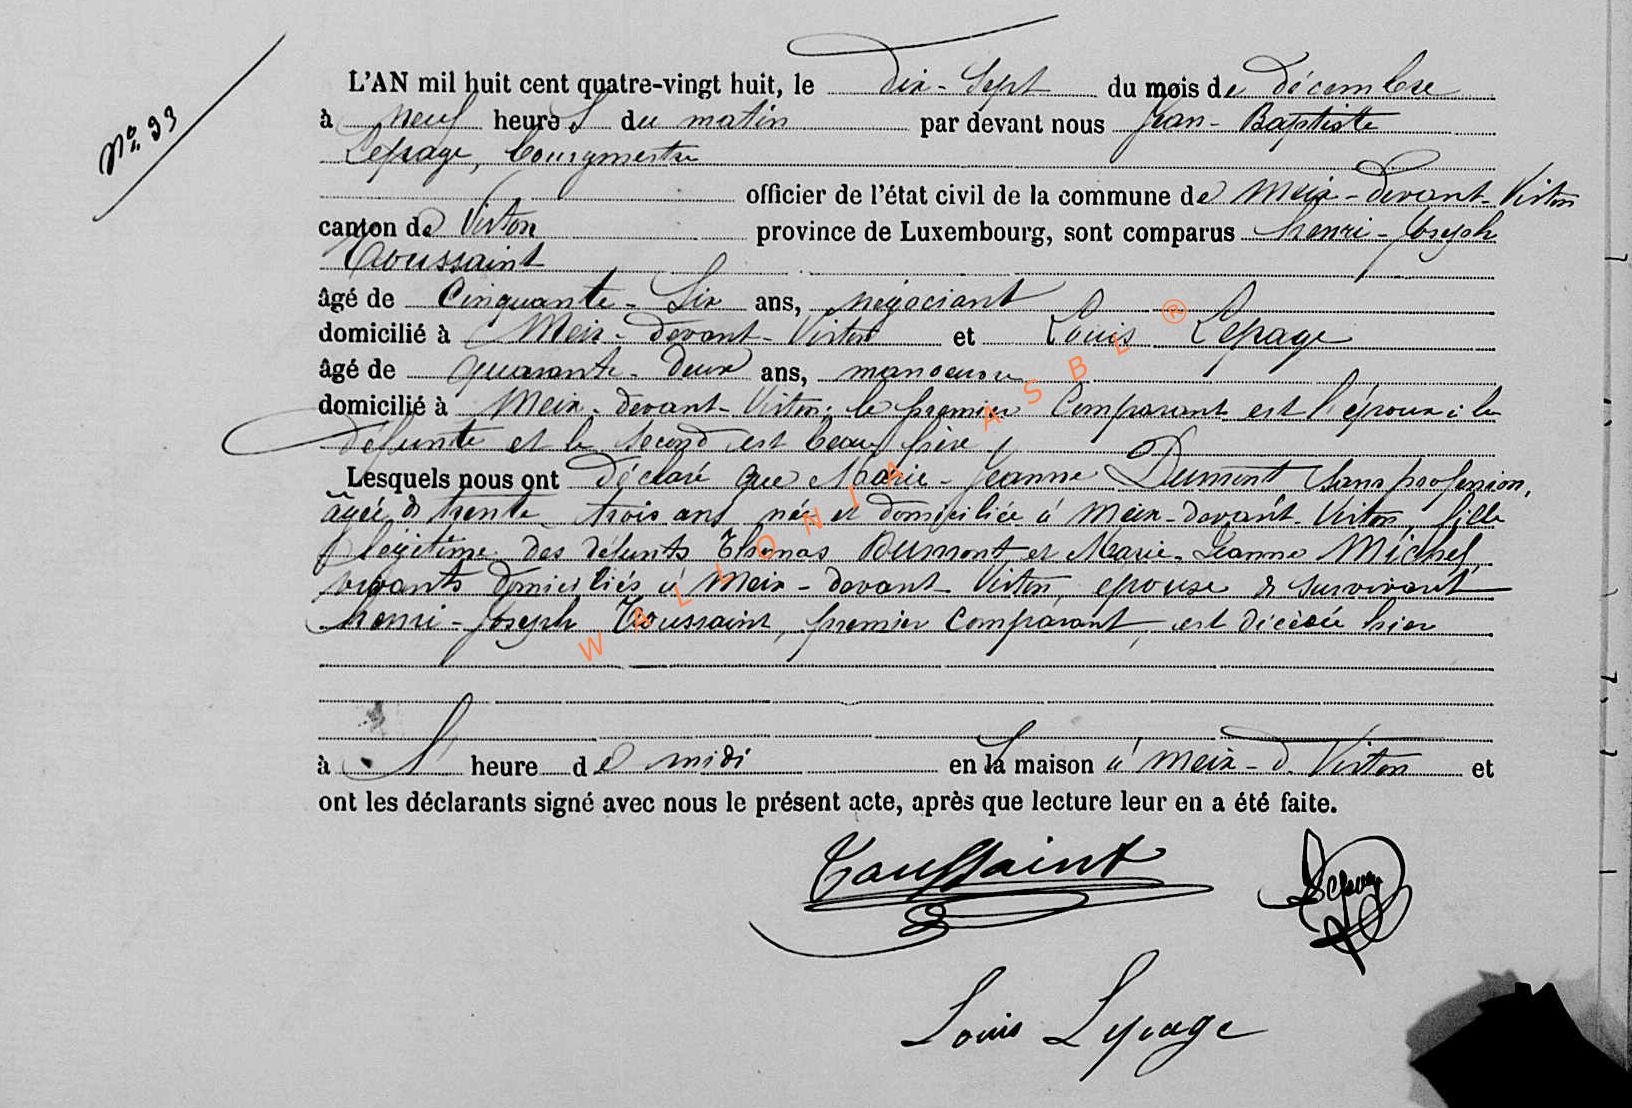 N° 33
L'AN mil huit cent quatre-vingt huit, le dix-sept du mois de décembre
à neuf heures du matin par devant nous Jean-Baptiste
Lepage, bourgmestre
officier de l'état civil de la commune de Meix-devant-Virton
canton de Virton province de Luxembourg, sont comparus henri-Joseph
Toussaint
âgé de Cinquante-Six ans, négociant
domicilié à Meix-devant-Virton et Louis Lepage
âgé de quarante-deux ans, manoeuvre
domicilié à Meix-devant-Virton; le premier Comparant est l'époux à la
défunte et le second est beau frère
Lesquels nous ont déclaré que Marie-Jeanne Dumont sans profession,
âgée de trente-trois ans née et domiciliée à Meix-devant-Virton, fille
légitime des défunts Thomas Dumont et Marie-Jeanne Michel,
vivants domiciliés à Meix-devant-Virton, épouse de survivant
henri-Joseph Toussaint, premier Comparant, est décédée hier
à heure de midi en la maison à Meix-d-Virton et
ont les déclarants signé avec nous le présent acte, après que lecture leur en a été faite.
Toussaint
Lepage
Louis Lepage
WALLONIA ASBL ®